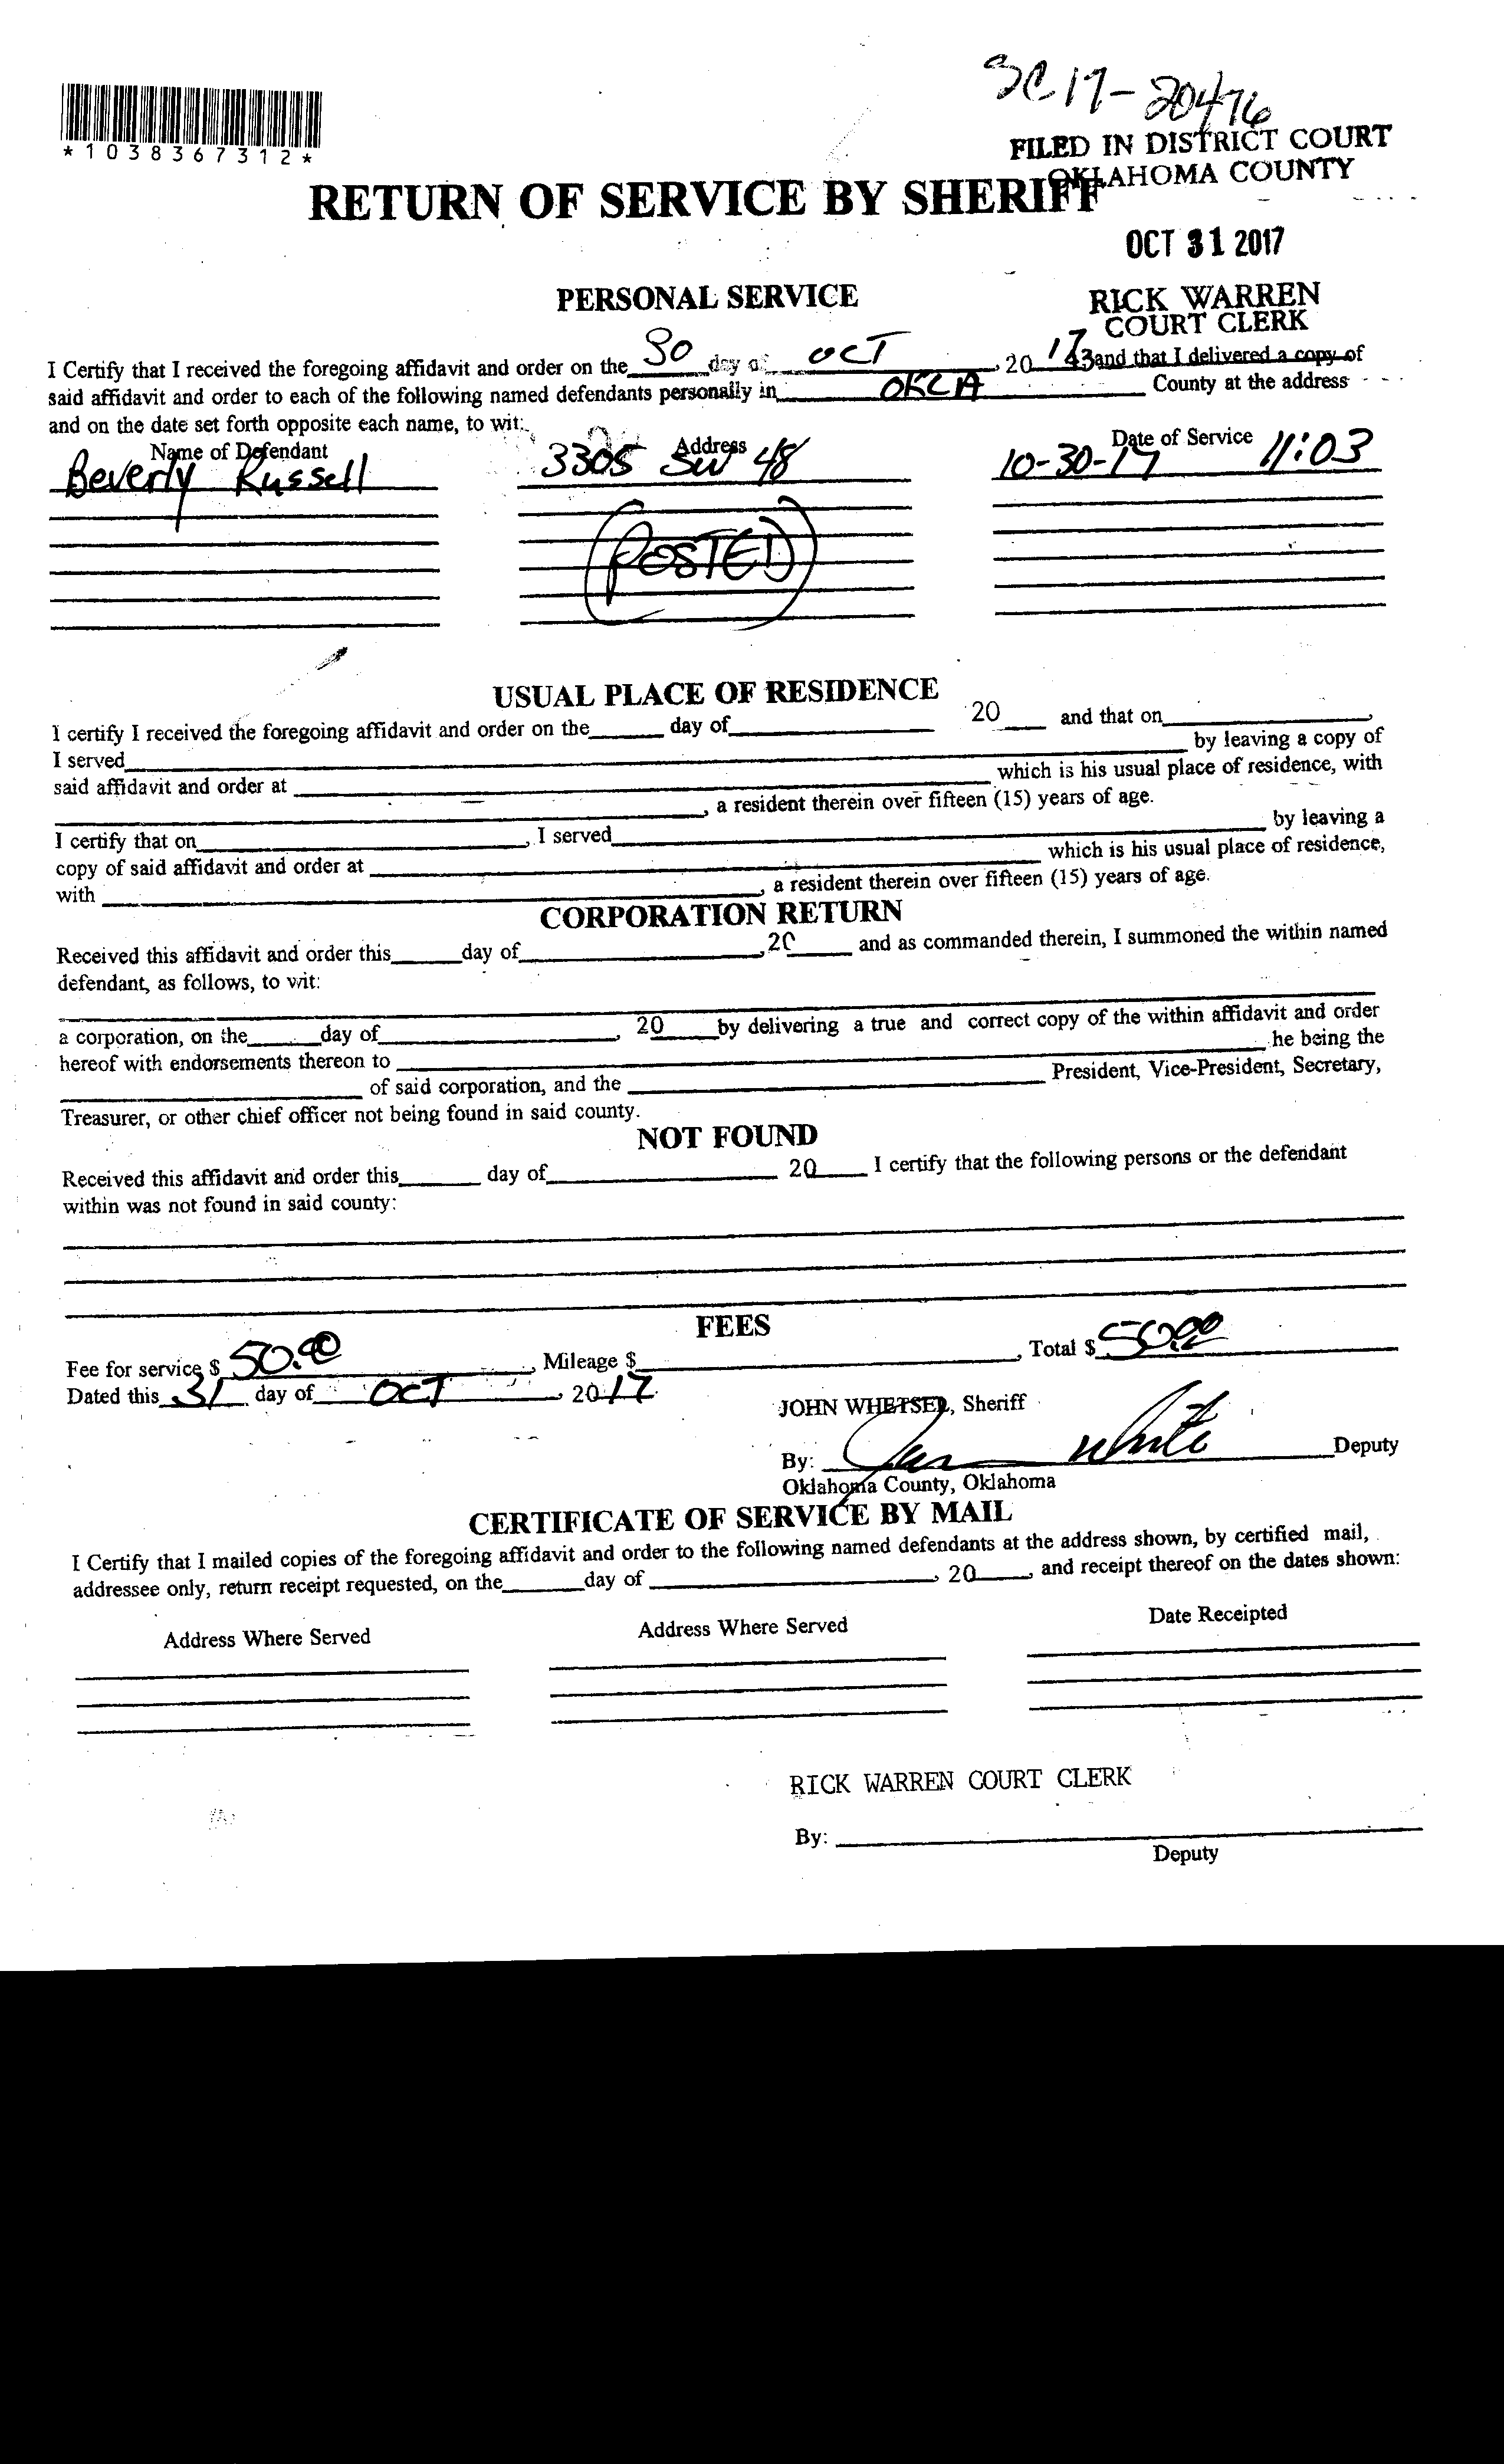 SC 17-20476
*1038367312*
FILED IN DISTRICT COURT
OKLAHOMA COUNTY
RETURN OF SERVICE BY SHERIFF
OCT 31 2017
PERSONAL SERVICE
RICK WARREN
COURT CLERK
I Certify that I received the foregoing affidavit and order on the 30 day of OCT, 20 17 43 and that I delivered a copy of
said affidavit and order to each of the following named defendants personally in OKLA County at the address
and on the date set forth opposite each name, to wit:
Name of Defendant Address Date of Service
Beverly Russell 3305 SW 48 10-30-17 11:03
POSTED
USUAL PLACE OF RESIDENCE
I certify I received the foregoing affidavit and order on the day of 20 and that on ,
I served by leaving a copy of
said affidavit and order at which is his usual place of residence, with
, a resident therein over fifteen (15) years of age.
I certify that on , I served by leaving a
copy of said affidavit and order at which is his usual place of residence,
with , a resident therein over fifteen (15) years of age.
CORPORATION RETURN
Received this affidavit and order this day of , 20 and as commanded therein, I summoned the within named
defendant, as follows, to wit:
a corporation, on the day of , 20 by delivering a true and correct copy of the within affidavit and order
hereof with endorsements thereon to he being the
of said corporation, and the President, Vice-President, Secretary,
Treasurer, or other chief officer not being found in said county.
NOT FOUND
Received this affidavit and order this day of 20 I certify that the following persons or the defendant
within was not found in said county:
FEES
Fee for service $ 50.00, Mileage $ , Total $ 50.00
Dated this 31 day of OCT, 2017
JOHN WHETSEL, Sheriff
By: White Deputy
Oklahoma County, Oklahoma
CERTIFICATE OF SERVICE BY MAIL
I Certify that I mailed copies of the foregoing affidavit and order to the following named defendants at the address shown, by certified mail,
addressee only, return receipt requested, on the day of , 20 , and receipt thereof on the dates shown:
Address Where Served Address Where Served Date Receipted
RICK WARREN COURT CLERK
By:
Deputy